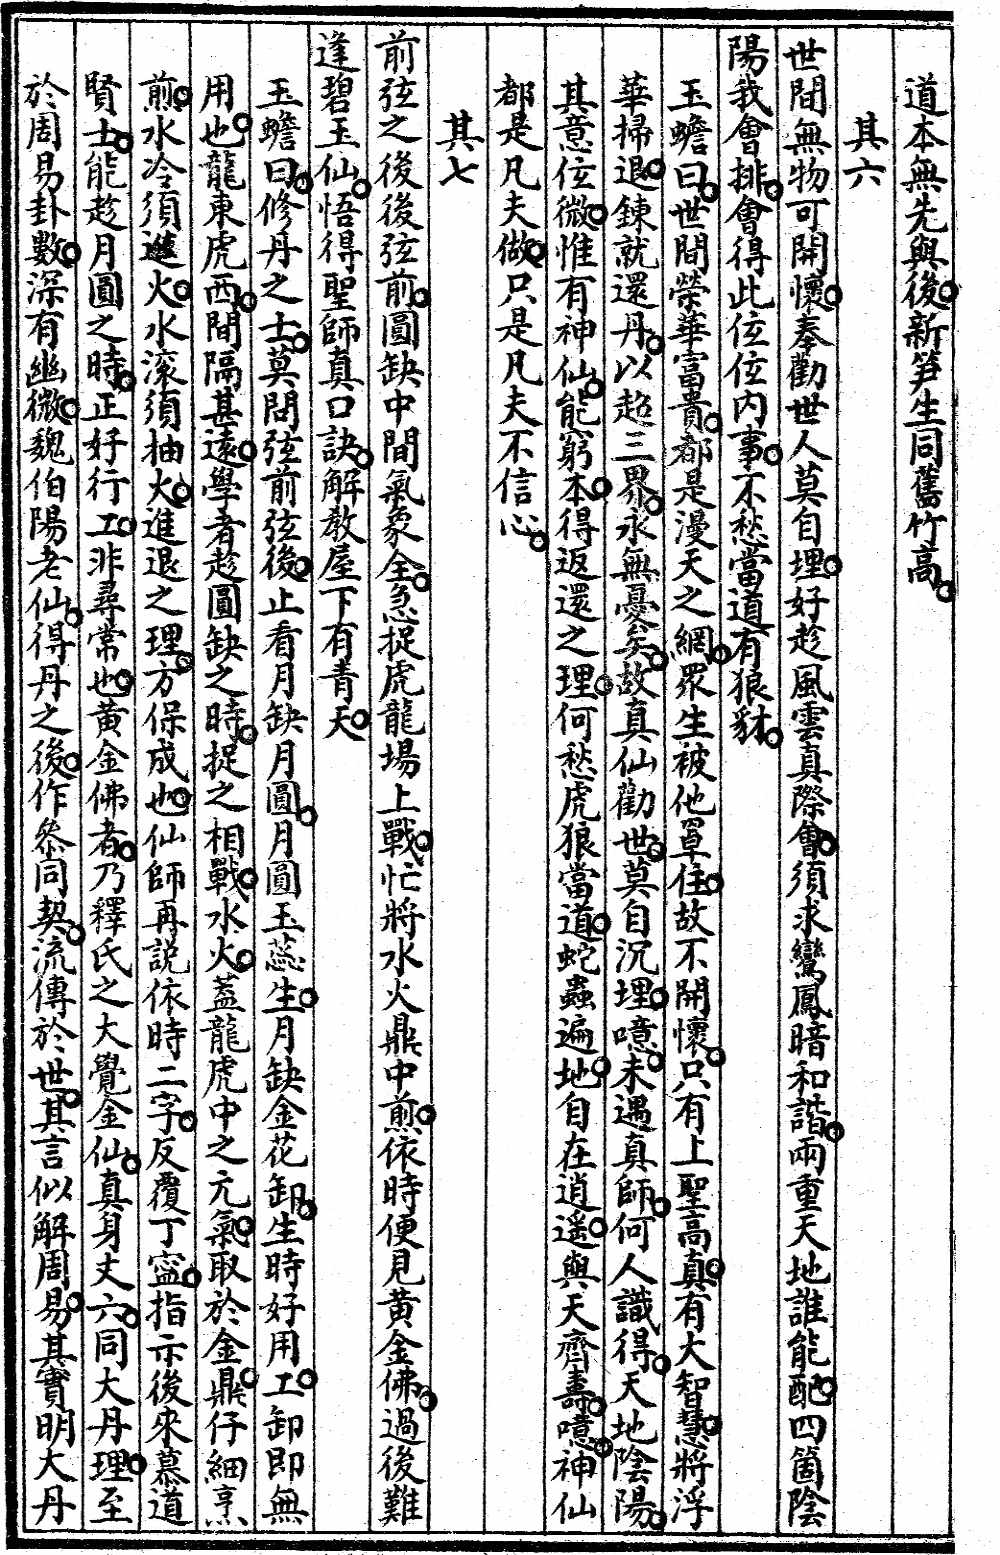 道本無先與後新笋生同舊竹高
其六
世間無物可開懷奉勸世人莫自埋好趁風雲真際會須求鸞鳳暗和諧兩重天地誰能配四箇陰
陽我會排會得此位位内事不愁當道有狼豺
玉蟾曰世間榮華富貴都是漫天之網眾生被他罩住故不開懷只有上聖高真有大智慧將浮
華掃退鍊就還丹以超三界永無憂矣故真仙勸世莫自沉埋噫未遇真師何人識得天地陰陽
其意位微惟有神仙能窮本得返還之理何愁虎狼當道蛇蟲遍地自在逍遥與天齊壽噫神仙
都是凡夫做只是凡夫不信心
其七
前弦之後後弦前圓缺中間氣象全急捉虎龍場上戰忙將水火鼎中煎依時便見黄金佛過後難
逢碧玉仙悟得聖師真口訣解教屋下有青天
玉蟾曰修丹之士莫問弦前弦後止看月缺月圓月圓玉蕊生月缺金花卸生時好用工卸即無
用也龍東虎西間隔甚遠學者趁圓缺之時捉之相戰水火葢龍虎中之元氣取於金鼎仔細烹
煎水冷須進火水滚須抽火進退之理方保成也仙師再説依時二字反覆丁寧指示後來慕道
賢士能趁月圓之時正好行工非尋常也黄金佛者乃釋氏之大覺金仙真身丈六同大丹理至
於周易卦數深有幽微魏伯陽老仙得丹之後作叅同契流傳於世其言似解周易其實明大丹